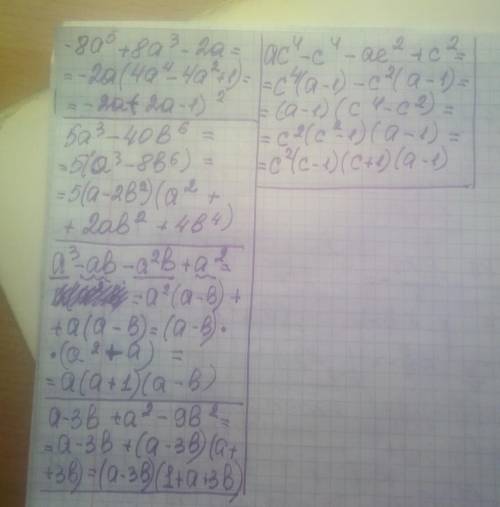 -8a⁵+8a³-2a=
=-2a(4a⁴-4a²+1)=
=-2a(2a-1)²
5a³-40b⁶=
=5(a³-8b⁶)=
=5(a-2b²)(a²+
+2ab²+4b⁴)
a³-ab-a²b+a²=
=a²(a-b)+
+a(a-b)=(a-b)·
·(a²+a)=
=a(a+1)(a-b)
a-3b+a²-9b²=
=a-3b+(a-3b)(a+
+3b)=(a-3b)(1+a+3b)
ac⁴-c⁴-ac²+c²=
=c⁴(a-1)-c²(a-1)=
=(a-1)(c⁴-c²)=
=c²(c²-1)(a-1)=
=c²(c-1)(c+1)(a-1)